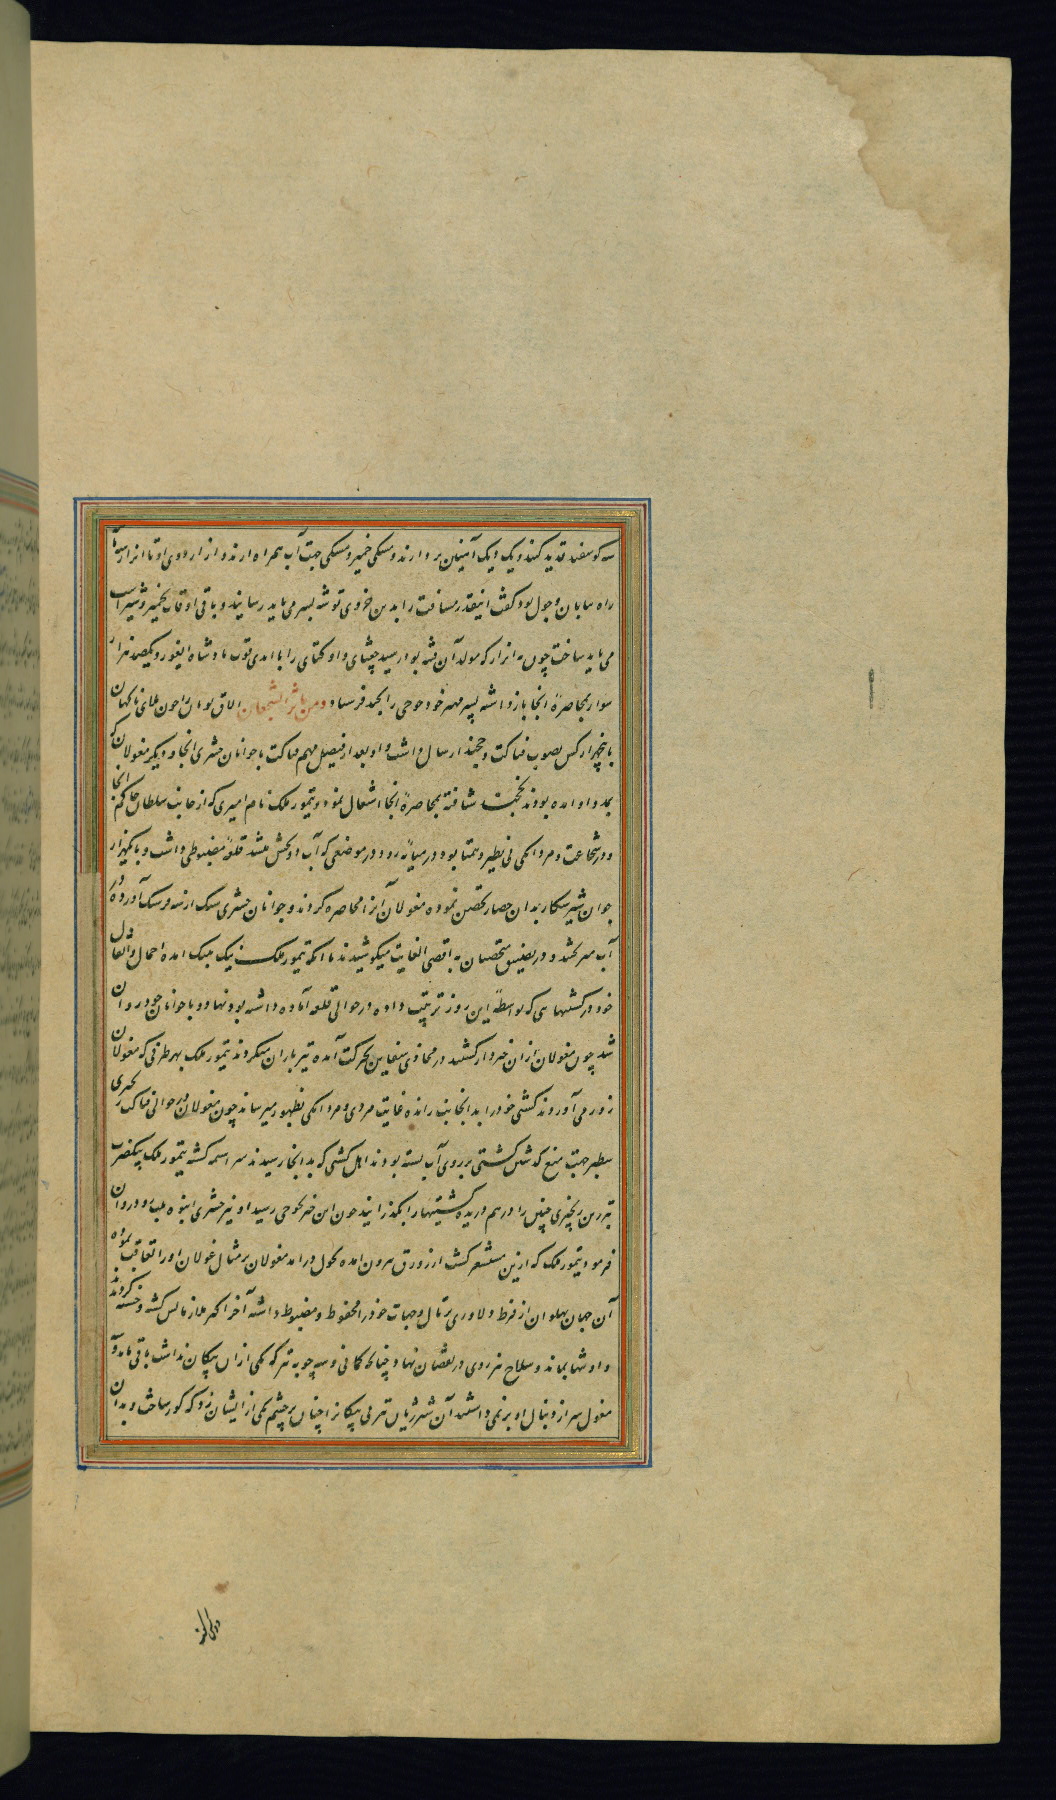 سه گوسفند قدید کنند و یک دیگ آهنین بردارند و مشکی خمیر و مشکی جهت آب همراه دارند و از اردوی او تا اترار سه ماهه
راه بیابان و چول بود گفت اینقدر مسافت را بدین خوردی توشه بسر می باید رسانید و باقی اوقات بخمیر و شیر اسب
می باید ساخت چون به اترار که مولد آن فتنه بود رسید چغتای و اوکتای را با ایدی قوت پادشاه ایغور و یکصد هزار
سوار بمحاصره آنجا بازداشته پسر مهتر خود جوجی را بجند فرستاد و الاق نویان را
با پنجهزار کس بصوب فناکت و خجند ارسال داشت و او بعد از فیصل مهم فناکت با جوانان حشری آنجا و دیگر مغولان که
بمدد او آمده بودند بخجند شتافته بمحاصره آنجا اشتغال نمود و تیمور ملک نام امیری که از جانب سلطان حاکم آنجا
و در شجاعت و مردانگی بی نظیر و همتا بود در میانه رود در موضعی که آب دو بخش میشد قلعه مضبوطی داشت و با یکهزار
جوان شیر شکار بدان حصار تحصن نموده مغولان آنرا محاصره کردند و جوانان حشری سنگ از سه فرسنگ آورده در
آب میریختند و در متحصنان به اقصی الغایت میکوشیدند تا آنکه تیمور ملک بتنگ آمده احمال و اثقال
خود در کشتیهایی که بواسطه این روز ترتیب داده در حوالی قلعه آماده داشته بود نهاد و با جوانان خود روان
شد چون مغولان ازان خبردار گشتند در محاذی سفاین بحرکت آمده تیرباران میکردند تیمور ملک بهر طرفی که مغولان
زور می آوردند کشتی خود را بدانجانب رانده غایت مردی و مردانگی بظهور میرسانید چون مغولان در حوالی فناکت زنجیری
سطبر جهت منع گذشتن کشتی بر روی آب بسته بودند اهل کشتی که بدانجا رسیدند سراسیمه گشته تیمور ملک بیکضرب
تبرزین زنجیری چنین را درهم دریده کشتیها را بگذرانید چون این خبر بجوجی رسید او نیز حشری انبوه بلب رود روان
فرمود تیمور ملک که ازین مستشعر گشت از زورق بیرون آمده بچول درآمد مغولان بر مثال غولان او را تعاقب نموده
آن جهان پهلوان از فرط دلاوری رمال و جهات خود را محفوظ و مضبوط داشته آخر اکثر ملازمانش کشته و خسته گردیدند
و او تنها بماند و سلاح نیز روی در نقصان نهاد چنانکه کمانی و سه چوبه تیر که یکی ازان پیکان نداشت باقی ماند و
مغول سر از دنبال او برنمی داشتند آن شیر ژیان تیر بی پیکان را چنان بر چشم یکی ازایشان زد که کور ساخت و بدان